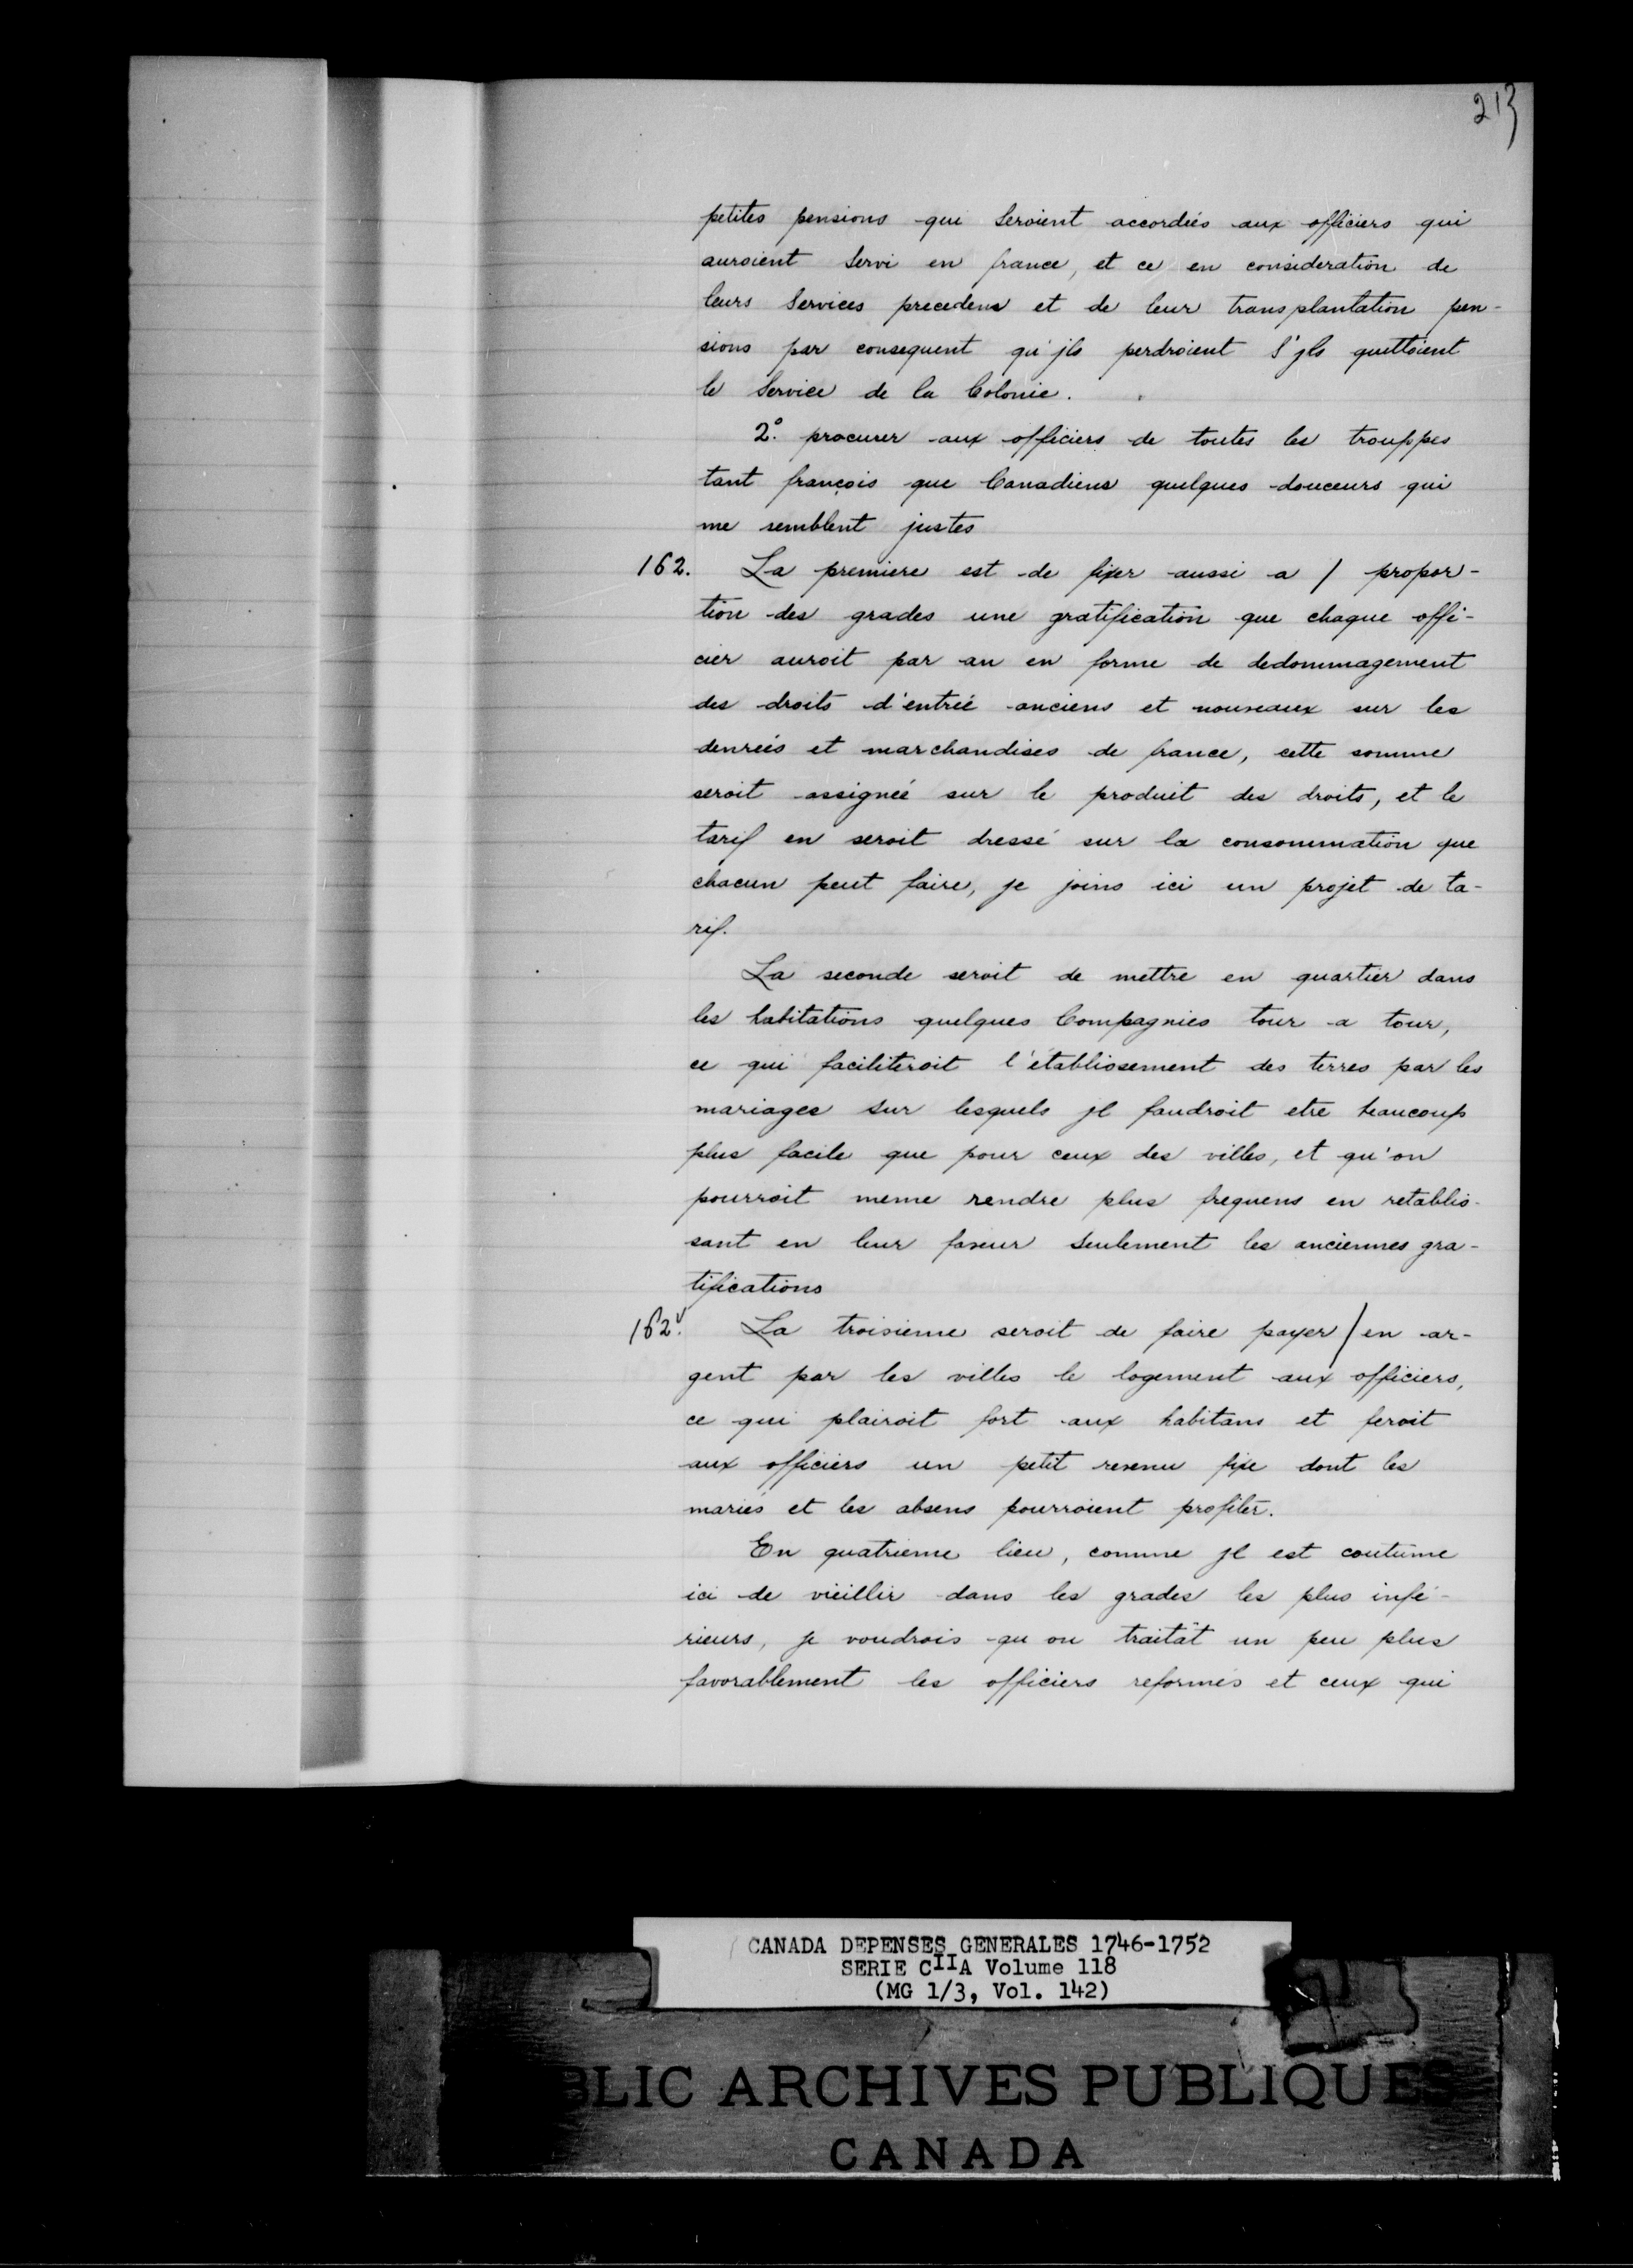 213
petites pensions qui seroient accordées aux officiers qui
auroient servi en france, et ce en consideration de
leurs services precedens et de leur transplantation pen-
sions par consequent qu'jls perdroient s'jls quittoient
le service de la Colonie.
2° procurer aux officiers de toutes les trouppes
tant françois que Canadiens quelques douceurs qui
me semblent justes
162. La premiere est de fixer aussi a / propor-
tion des grades une gratification que chaque offi-
cier auroit par an en forme de dedommagement
des droits d'entrée anciens et nouveaux sur les
denrées et marchandises de france, cette somme
seroit assignée sur le produit des droits, et le
tarif en seroit dressé sur la consommation que
chacun peut faire, je joins ici un projet de ta-
rif.
La seconde seroit de mettre en quartier dans
les habitations quelques Compagnies tour a tour,
ce qui faciliteroit l'établissement des terres par les
mariages sur lesquels jl faudroit etre beaucoup
plus facile que pour ceux des villes, et qu'on
pourroit meme rendre plus frequens en retablis-
sant en leur faveur seulement les anciennes gra-
tifications
162v. La troisieme seroit de faire payer / en ar-
gent par les villes le logement aux officiers,
ce qui plairoit fort aux habitans et feroit
aux officiers un petit revenu fixe dont les
mariés et les absens pourroient profiter.
En quatrieme lieu, comme jl est coutume
ici de vieillir dans les grades les plus infé-
rieurs, je voudrois qu'on traitât un peu plus
favorablement les officiers reformés et ceux qui
CANADA DEPENSES GENERALES 1746-1752
SERIE CIIA Volume 118
(MG 1/3, Vol. 142)
BLIC ARCHIVES PUBLIQUES
CANADA